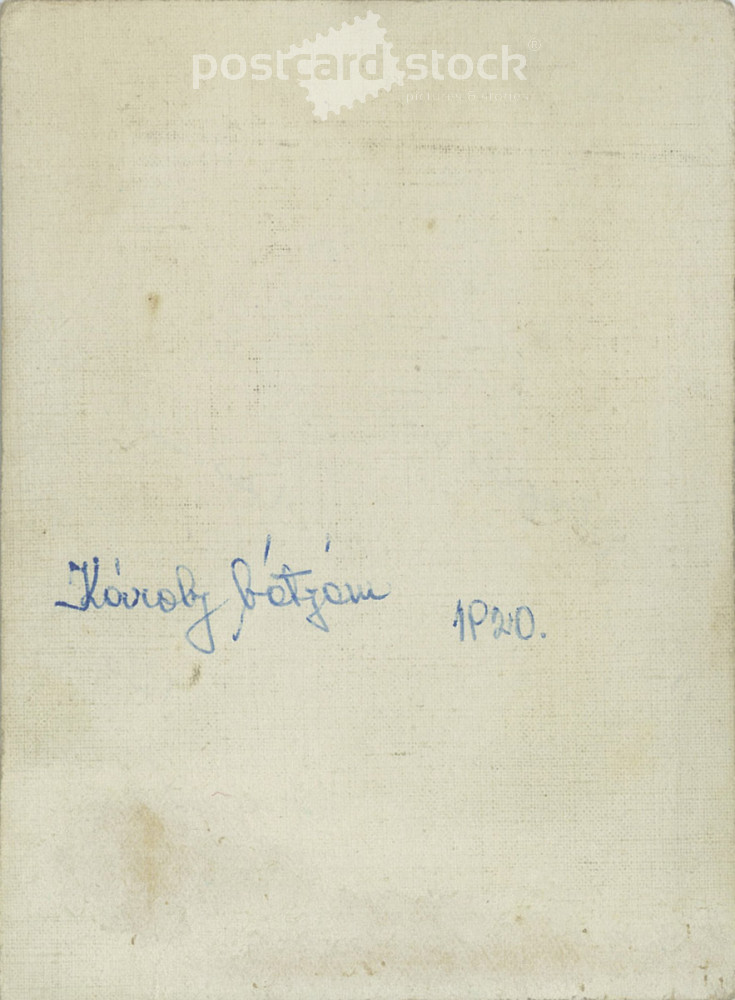 postcard.stock®
Károly bátyám 1920.